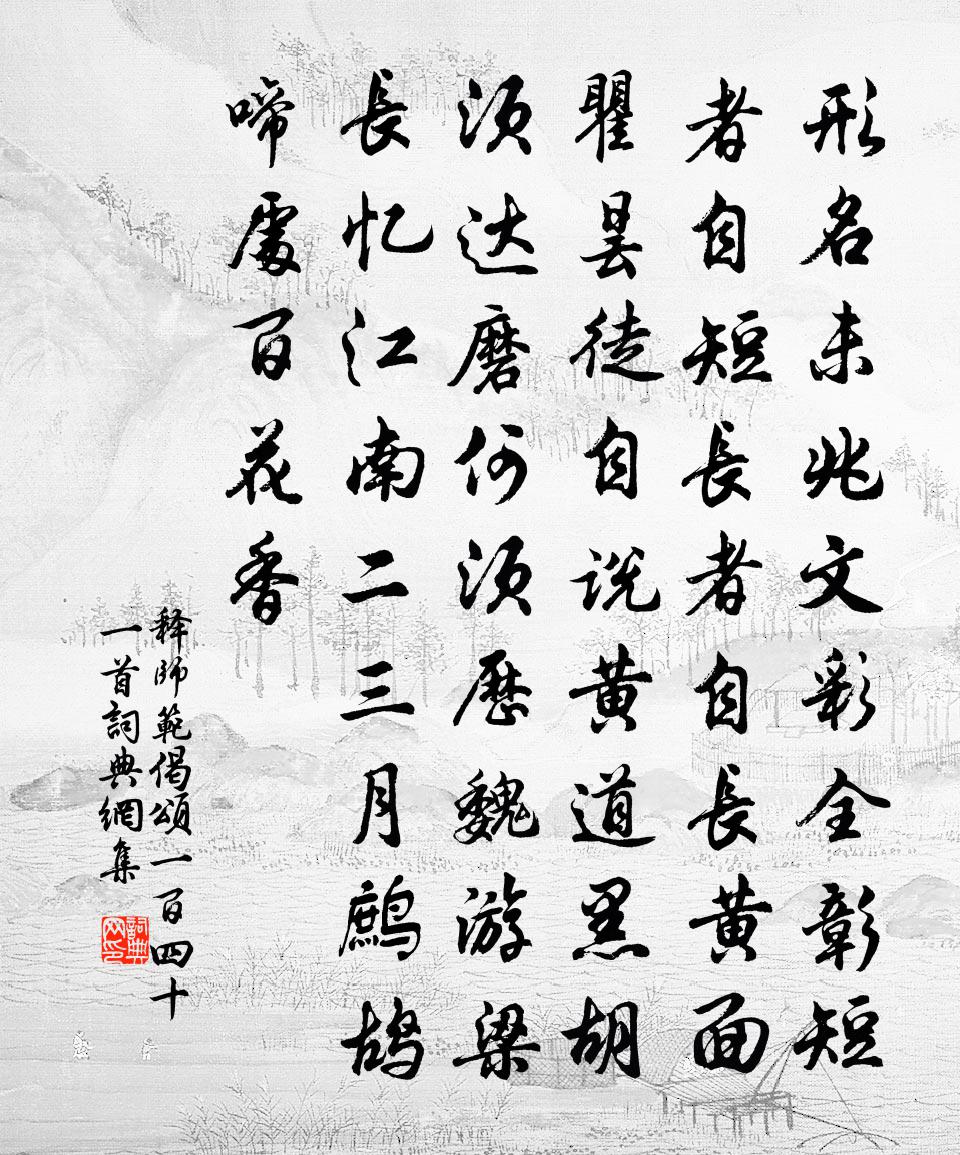 形名未兆文彩全彰短
者自短長者自長黄面
瞿昙徒自说黄道黑胡
须达磨何须歷魏游梁
長忆江南二三月鹧鸪
啼處百花香
释師範偈頌一百四十
一首詞典網集
詞典
网印